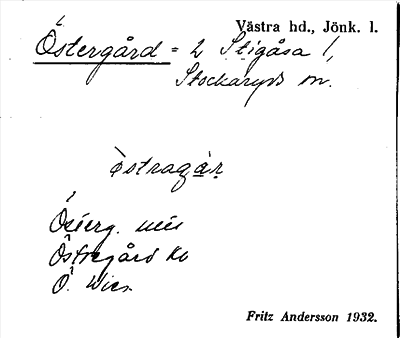 Västra hd., Jönk. l.
Östergård = 2 Stigåsa 1,
Stockaryds sn.
òstragɑ́r
Österg.
Östregård
Ö.
Fritz Andersson 1932.